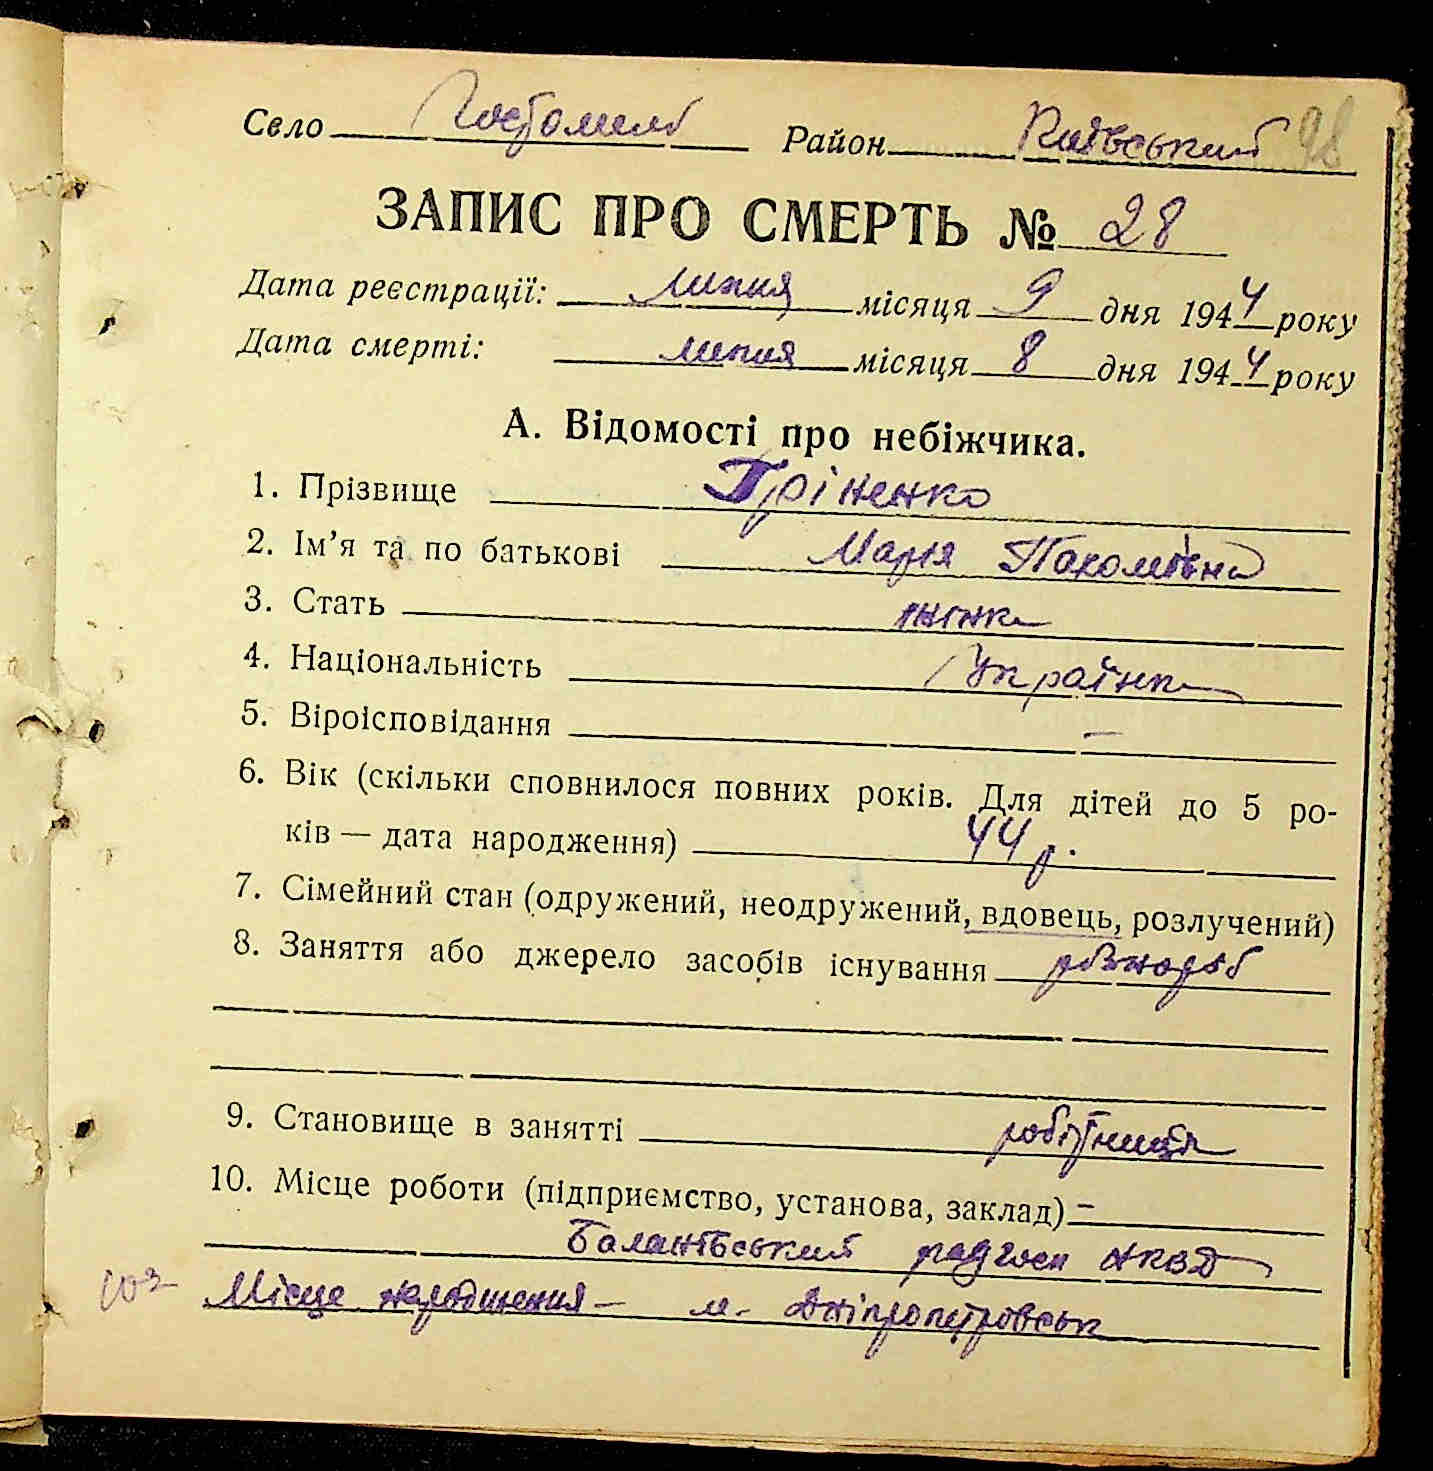 Село Гостомель Район Київський 98
ЗАПИС ПРО СМЕРТЬ № 28
Дата реєстрації: липня місяця 9 дня 1944 року
Дата смерті: липня місяця 8 дня 1944 року
А. Відомості про небіжчика.
1. Прізвище Гріненко
2. Ім’я та по батькові Марія Пахомівна
3. Стать жінка
4. Національність Українка
5. Віроісповідання —
6. Вік (скільки сповнилося повних років. Для дітей до 5 ро-
ків — дата народження) 44 р.
7. Сімейний стан (одружений, неодружений, вдовець, розлучений)
8. Заняття або джерело засобів існування
9. Становище в занятті робітниця
10. Місце роботи (підприємство, установа, заклад) –
радгосп НКВД
Місце народження – м. Дніпропетровськ